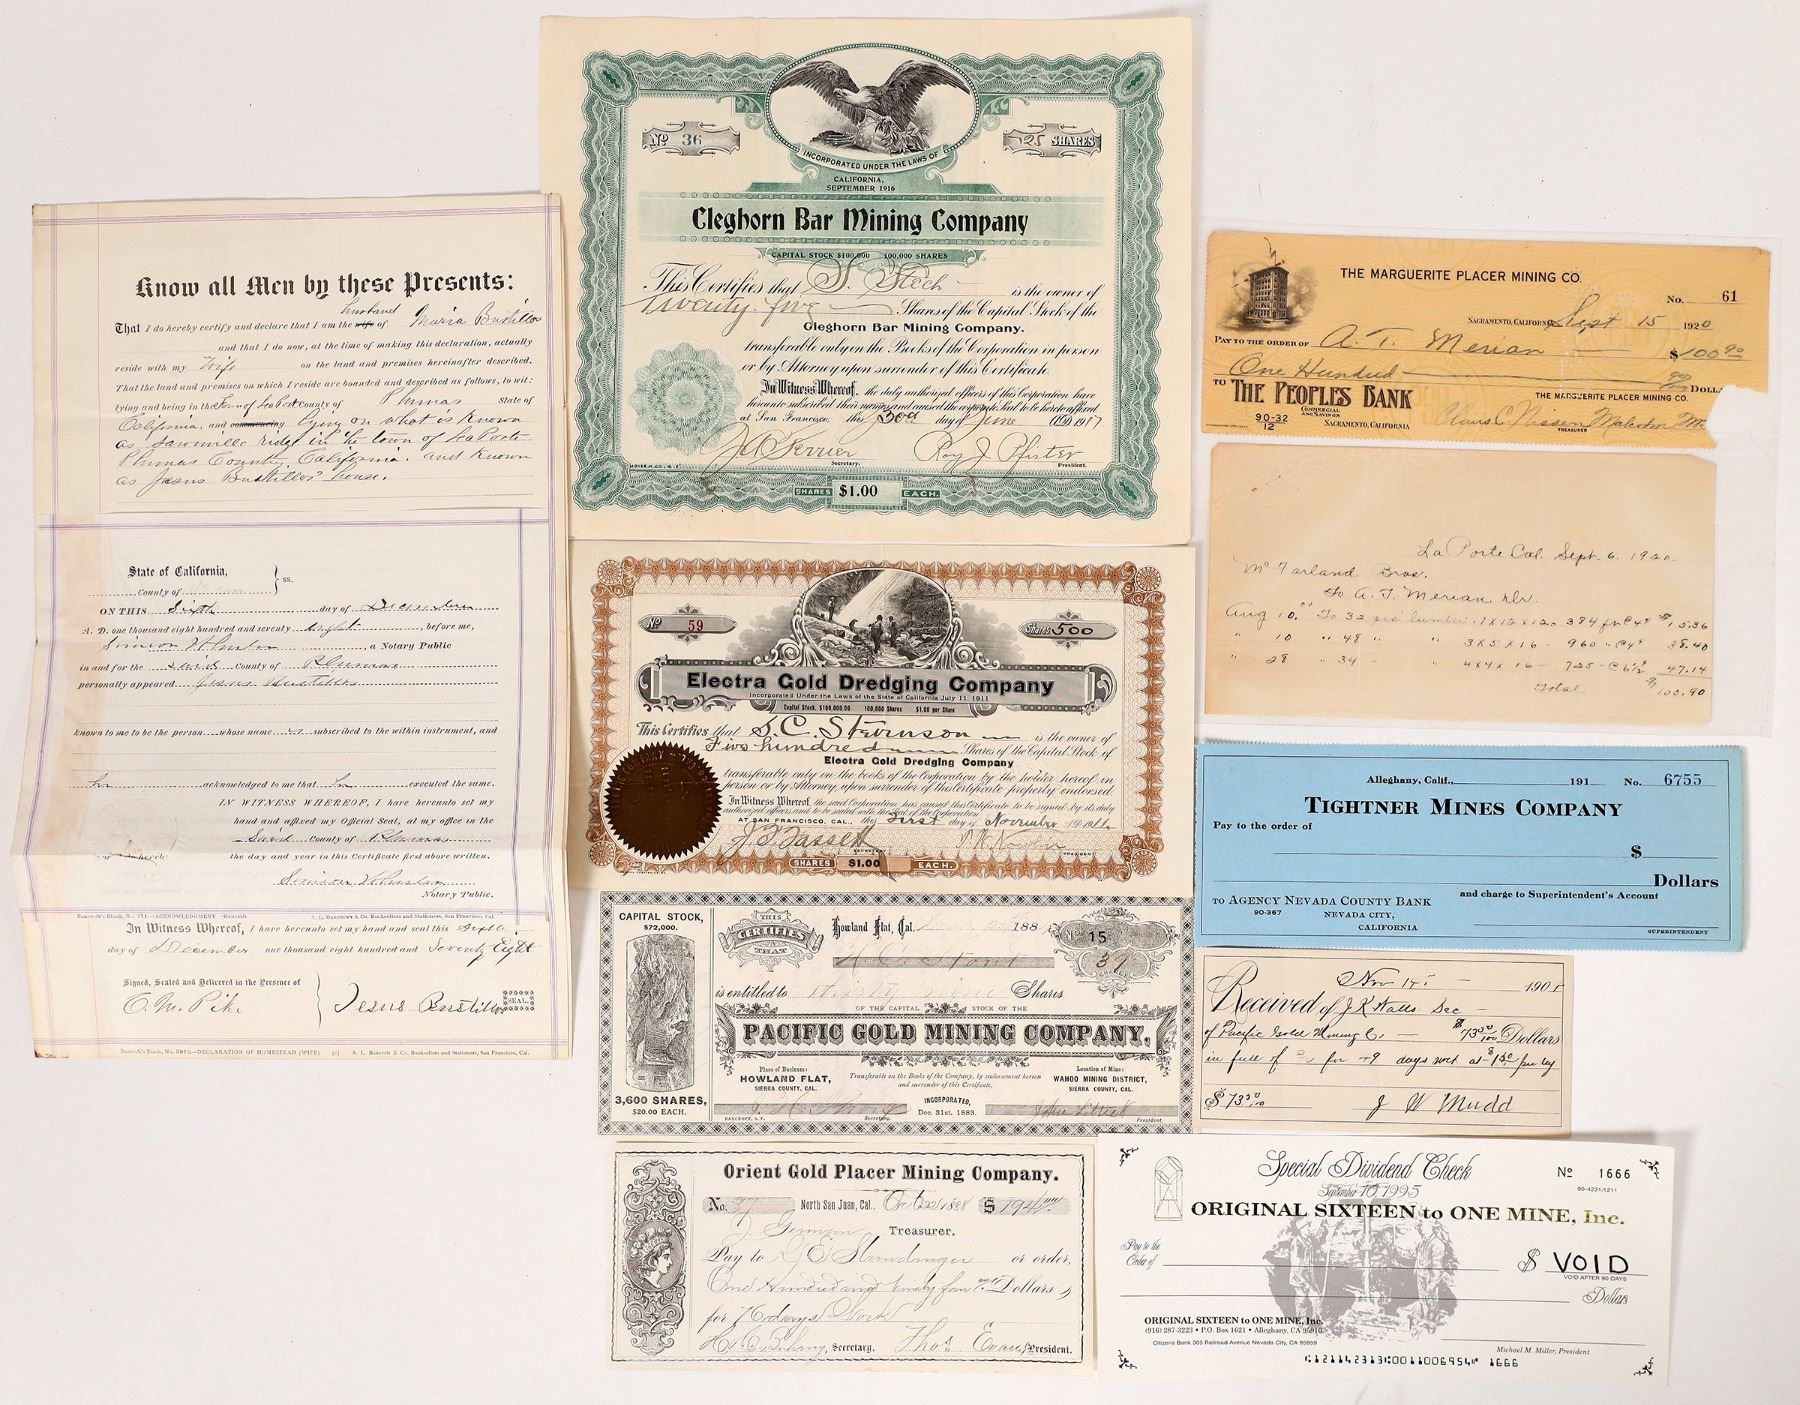 Know all Men by these Presents:
husband Maria Bustillos
That I do hereby certify and declare that I am the wife of
and that I do now, at the time of making this declaration, actually
reside with my Wife on the land and premises hereinafter described.
That the land and premises on which I reside are bounded and described as follows, to wit:
lying and being in the Town of La Porte county of Plumas State of
California, and commencing lying on what is known
as Sawmill ridge in the town of La Porte
Plumas County, California. and known
as Jesus Bustillos' house.
State of California,
County of } ss.
ON THIS Sixth day of December
A. D. one thousand eight hundred and seventy eight, before me,
a Notary Public
in and for the said County of Plumas
personally appeared Jesus Bustillos
known to me to be the person whose name is subscribed to the within instrument, and
he acknowledged to me that he executed the same.
IN WITNESS WHEREOF, I have hereunto set my
hand and affixed my Official Seal, at my office in the
Said County of Plumas
the day and year in this Certificate first above written.
Notary Public.
Bancroft's Blank, No. 171.—ACKNOWLEDGMENT (General) A. L. BANCROFT & Co. Booksellers and Stationers, San Francisco, Cal.
In Witness Whereof, I have hereunto set my hand and seal this Sixth
day of December one thousand eight hundred and Seventy Eight
Signed, Sealed and Delivered in the Presence of
O. M. Pike } Jesus Bustillos SEAL.
—DECLARATION OF HOMESTEAD (WIFE) A. L. Bancroft & Co. Booksellers and Stationers, San Francisco, Cal.
No 36 25 SHARES
INCORPORATED UNDER THE LAWS OF
CALIFORNIA,
SEPTEMBER 1916
Cleghorn Bar Mining Company
CAPITAL STOCK $100,000 100,000 SHARES
This Certifies that S. Stech is the owner of
Twenty five Shares of the Capital Stock of the
Cleghorn Bar Mining Company.
transferable only on the Books of the Corporation in person
or by Attorney upon surrender of this Certificate.
In Witness Whereof, the duly authorized officers of this Corporation have
hereunto subscribed their names and caused the corporate Seal to be hereto affixed
at San Francisco, this 30th day of June A.D. 1917
J C Ferrier Roy J. Pfister
Secretary. President.
SHARES $1.00 EACH.
No 59 Shares 500
Electra Gold Dredging Company
Incorporated Under the Laws of the State of California July 11, 1911
Capital Stock, $100,000.00 100,000 Shares $1.00 per Share
This Certifies that S. C. Stevenson is the owner of
Five hundred Shares of the Capital Stock of
Electra Gold Dredging Company
transferable only on the books of the Corporation by the holder hereof in
person or by Attorney, upon surrender of this Certificate properly endorsed.
In Witness Whereof, the said Corporation has caused this Certificate to be signed by its duly
authorized officers and to be sealed with the Seal of the Corporation
AT SAN FRANCISCO, CAL., this first day of November AD 1911
SECRETARY PRESIDENT
SHARES $1.00 EACH.
CAPITAL STOCK,
$72,000.
3,600 SHARES,
$20.00 EACH.
THIS CERTIFIES THAT
Howland Flat, Cal. 188
15
37 SHARES
is entitled to Shares
OF THE CAPITAL STOCK OF THE
PACIFIC GOLD MINING COMPANY,
Place of Business:
HOWLAND FLAT,
SIERRA COUNTY, CAL.
Transferable on the Books of the Company, by endorsement hereon
and surrender of this Certificate.
Location of Mine:
WAHOO MINING DISTRICT,
SIERRA COUNTY, CAL.
INCORPORATED,
Dec. 31st, 1883.
BANCROFT, S.F. Secretary. President
Orient Gold Placer Mining Company.
No. 37 North San Juan, Cal., Oct 22 1888 $ 194
Treasurer.
Pay to or order,
One Hundred and ninety four Dollars
for 76 days Work
Secretary. Thos. Evans President.
THE MARGUERITE PLACER MINING CO.
No. 61
SACRAMENTO, CALIFORNIA Sept 15 1920
PAY TO THE ORDER OF A. T. Merian $100.90
One Hundred 90/100 DOLLARS
TO THE PEOPLES BANK
COMMERCIAL AND SAVINGS
90-32
12
SACRAMENTO, CALIFORNIA
THE MARGUERITE PLACER MINING CO.
Claus C. Nissen Malcolm
TREASURER
La Porte Cal. Sept. 6. 1920.
McFarland Bros.
To A. T. Merian, Dr.
Aug 10" To 32 pcs lumber 1 x 12 x 12 384 ft @ 4¢ $15.36
" 10 " 48 " " 3 x 5 x 16 - 960 " @ 4¢ 38.40
" 28 " 34 " " 4 x 4 x 16 - 725 - @ 6½¢ 47.14
Total $100.90
Alleghany, Calif., 191 No. 6755
TIGHTNER MINES COMPANY
Pay to the order of
$
Dollars
TO AGENCY NEVADA COUNTY BANK and charge to Superintendent's Account
90-367
NEVADA CITY,
CALIFORNIA
SUPERINTENDENT
Nov 1905
Received of J. R. Walls Sec
of Pacific Gold Mining Co. $73 50/100 Dollars
in full of for 49 days work at $1.50 per day
$ 73 50/100 J W Mudd
Special Dividend Check
No 1666
September 10, 1995
90-4231/1211
ORIGINAL SIXTEEN to ONE MINE, Inc.
Pay to the
Order of $ VOID
VOID AFTER 90 DAYS
Dollars
ORIGINAL SIXTEEN to ONE MINE, Inc.
(916) 287-3223 • P.O. Box 1621 • Alleghany, CA 95910
Citizens Bank 305 Railroad Avenue Nevada City, CA 95959
Michael M. Miller, President
⑆121142313⑆0011006954⑈ 1666